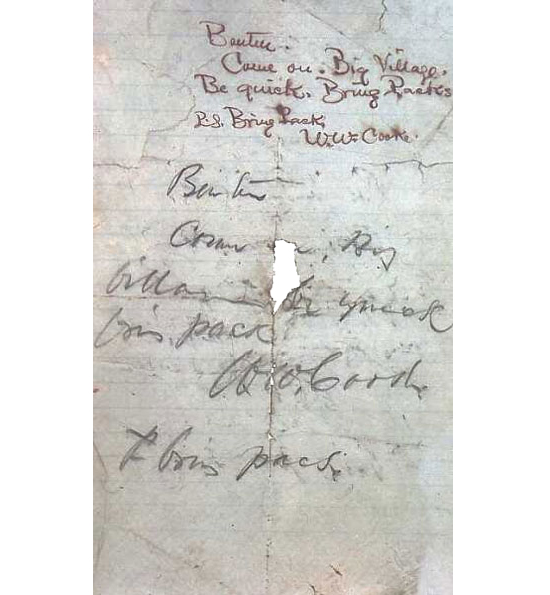 Benteen.
Come on. Big Village.
Be quick. Bring Packs
P.S. Bring Pack.
W.W. Cooke.
Benteen
Come on. Big
Village be quick
bring packs
W.W. Cooke
P bring pacs.